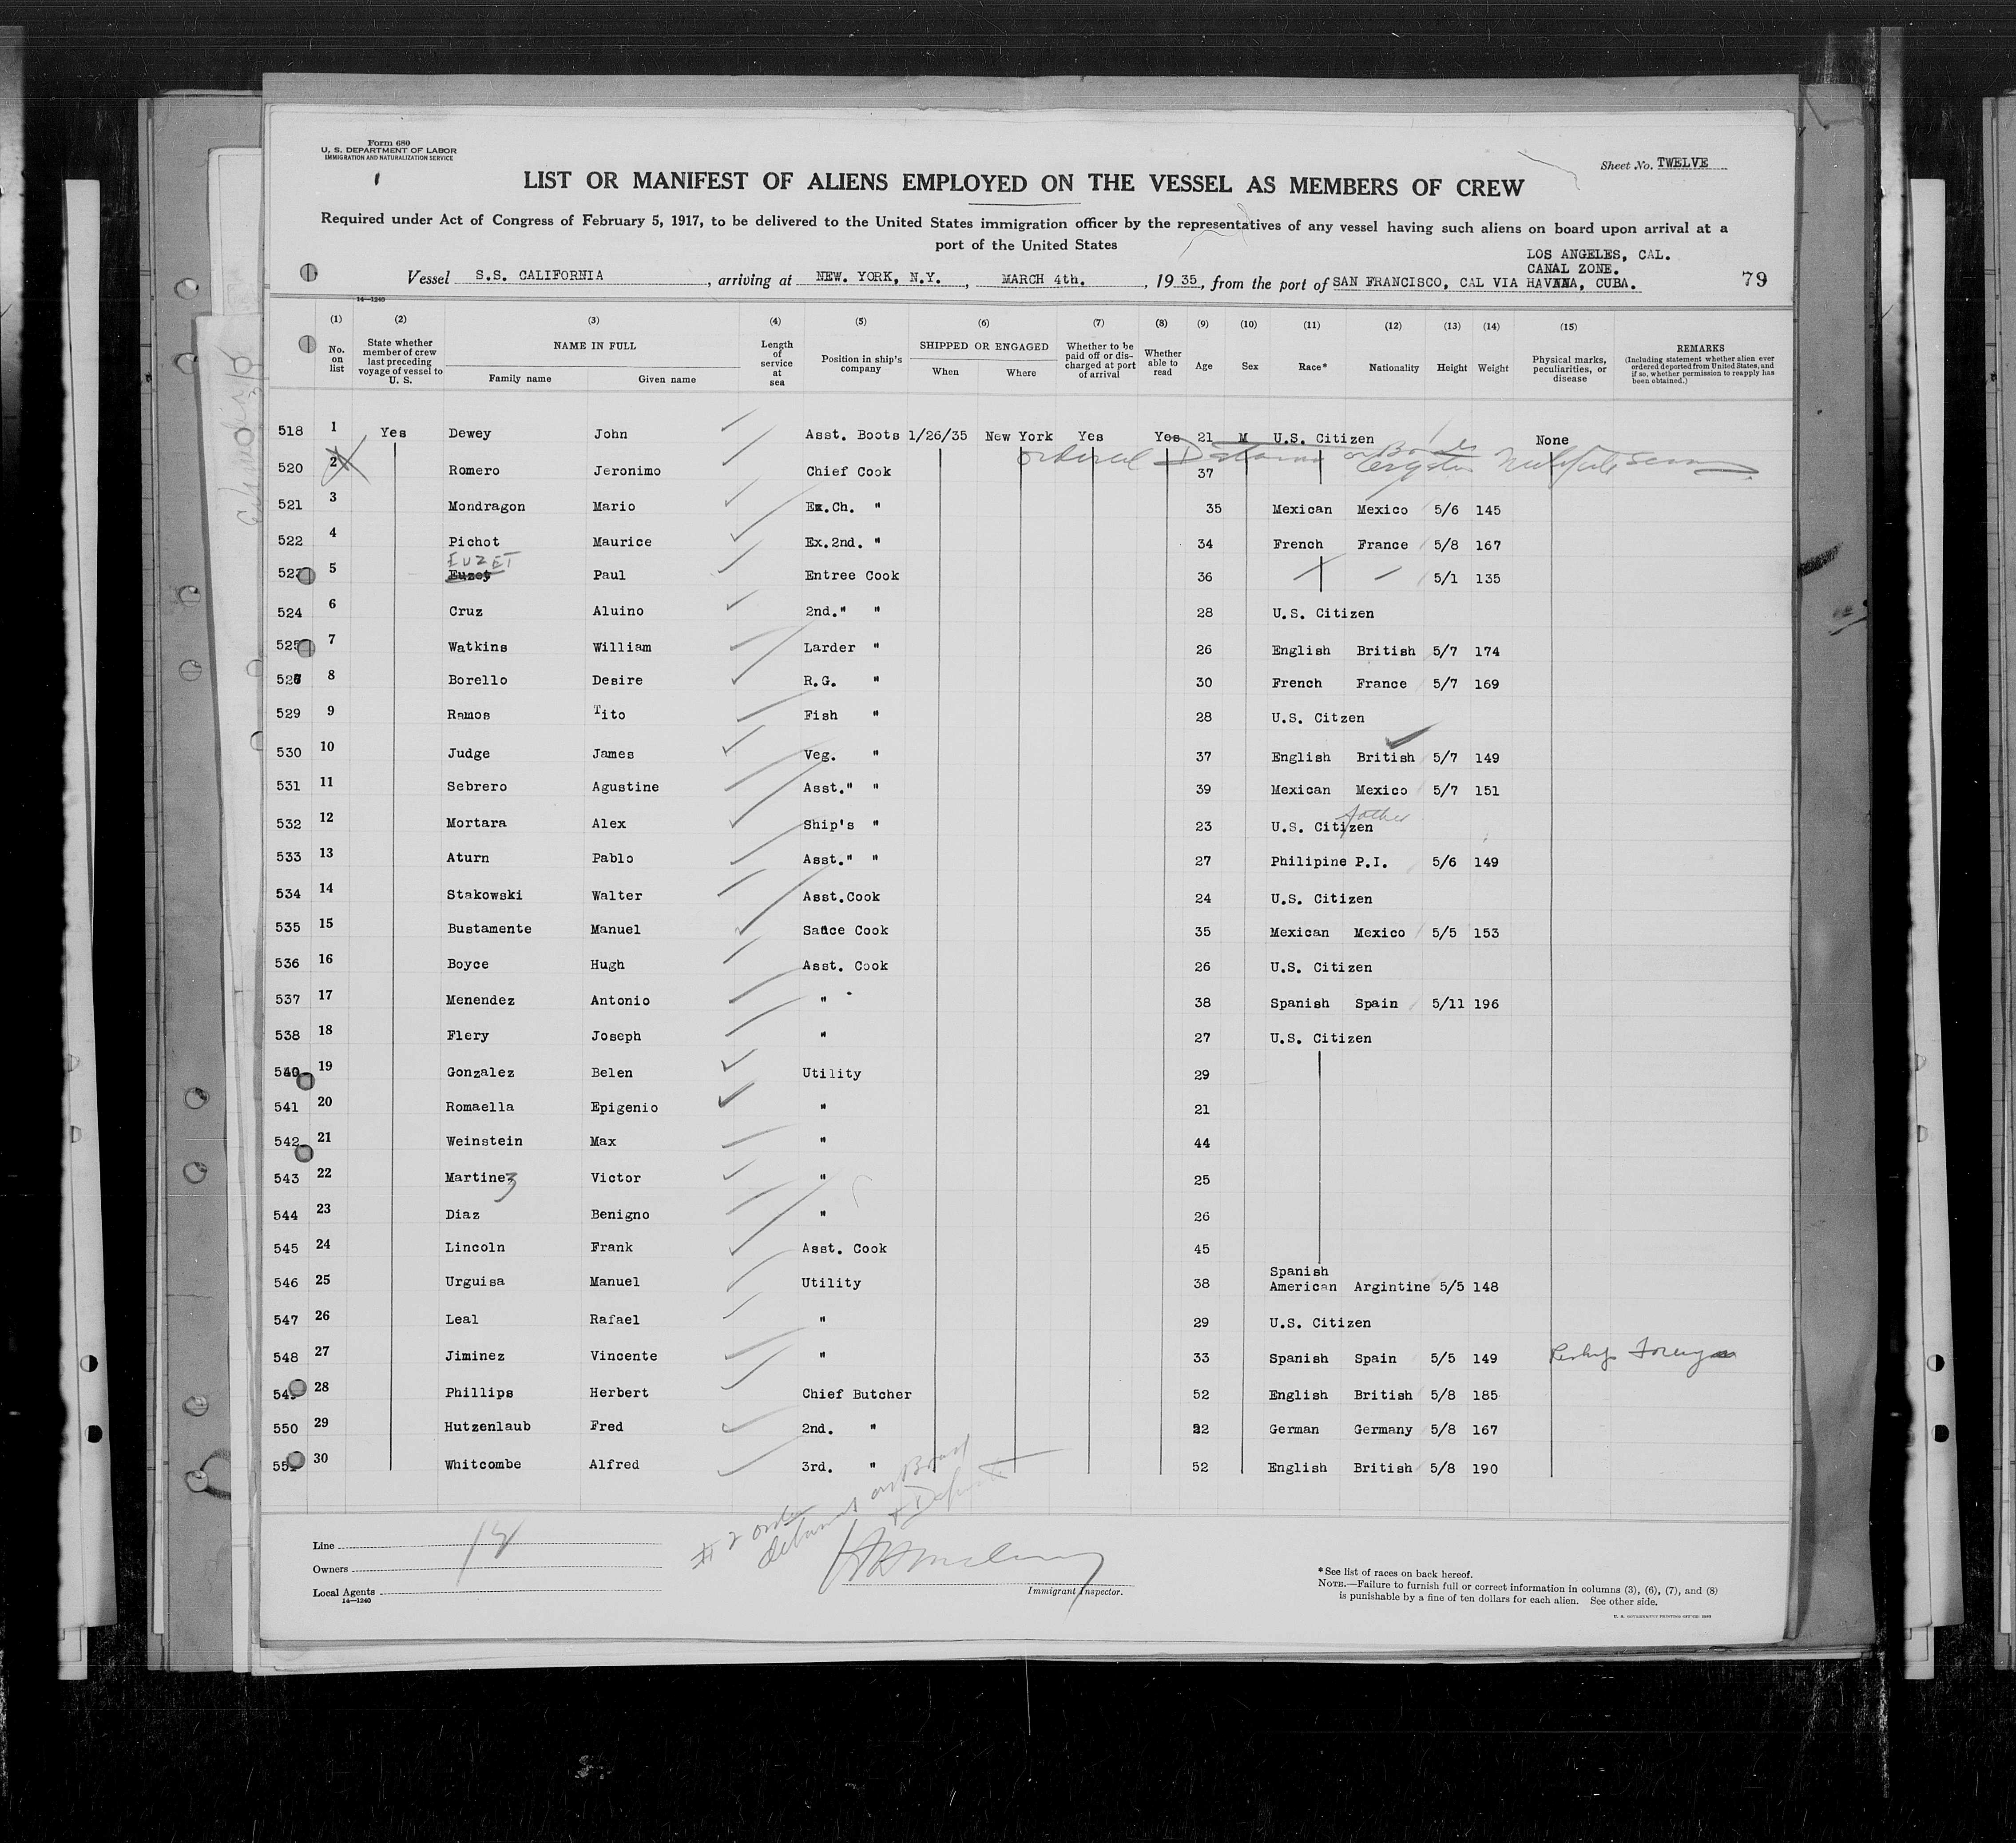 Form 680
U. S. DEPARTMENT OF LABOR
IMMIGRATION AND NATURALIZATION SERVICE
Sheet No. TWELVE
LIST OR MANIFEST OF ALIENS EMPLOYED ON THE VESSEL AS MEMBERS OF CREW
Required under Act of Congress of February 5, 1917, to be delivered to the United States immigration officer by the representatives of any vessel having such aliens on board upon arrival at a
port of the United States
LOS ANGELES, CAL.
CANAL ZONE.
Vessel S.S. CALIFORNIA, arriving at NEW. YORK, N.Y., MARCH 4th., 1935, from the port of SAN FRANCISCO, CAL VIA HAVANA, CUBA. 79
14—1240
(1) (2) (3) (4) (5) (6) (7) (8) (9) (10) (11) (12) (13) (14) (15)
No. on list State whether member of crew last preceding voyage of vessel to U. S. NAME IN FULL Family name Given name Length of service at sea Position in ship's company SHIPPED OR ENGAGED When Where Whether to be paid off or discharged at port of arrival Whether able to read Age Sex Race* Nationality Height Weight Physical marks, peculiarities, or disease REMARKS (Including statement whether alien ever ordered deported from United States, and if so, whether permission to reapply has been obtained.)
518 1 Yes Dewey John Asst. Boots 1/26/35 New York Yes Yes 21 M U.S. Citizen None
ordered
520 2 Romero Jeronimo Chief Cook 37
521 3 Mondragon Mario Ex.Ch. " 35 Mexican Mexico 5/6 145
522 4 Pichot Maurice Ex.2nd. " 34 French France 5/8 167
EUZET
523 5 Euzet Paul Entree Cook 36 5/1 135
524 6 Cruz Aluino 2nd." " 28 U.S. Citizen
525 7 Watkins William Larder " 26 English British 5/7 174
528 8 Borello Desire R.G. " 30 French France 5/7 169
529 9 Ramos Tito Fish " 28 U.S. Citzen
530 10 Judge James Veg. " 37 English British 5/7 149
531 11 Sebrero Agustine Asst." " 39 Mexican Mexico 5/7 151
father
532 12 Mortara Alex Ship's " 23 U.S. Citizen
533 13 Aturn Pablo Asst." " 27 Philipine P.I. 5/6 149
534 14 Stakowski Walter Asst.Cook 24 U.S. Citizen
535 15 Bustamente Manuel Sauce Cook 35 Mexican Mexico 5/5 153
536 16 Boyce Hugh Asst. Cook 26 U.S. Citizen
537 17 Menendez Antonio " 38 Spanish Spain 5/11 196
538 18 Flery Joseph " 27 U.S. Citizen
540 19 Gonzalez Belen Utility 29
541 20 Romaella Epigenio " 21
542 21 Weinstein Max " 44
543 22 Martinez Victor " 25
544 23 Diaz Benigno " 26
545 24 Lincoln Frank Asst. Cook 45
546 25 Urguisa Manuel Utility 38 Spanish American Argintine 5/5 148
547 26 Leal Rafael " 29 U.S. Citizen
548 27 Jiminez Vincente " 33 Spanish Spain 5/5 149
549 28 Phillips Herbert Chief Butcher 52 English British 5/8 185
550 29 Hutzenlaub Fred 2nd. " 22 German Germany 5/8 167
551 30 Whitcombe Alfred 3rd. " 52 English British 5/8 190
# 2 order
on Board
Line
Owners
Local Agents
14—1240
Immigrant Inspector.
*See list of races on back hereof.
NOTE.—Failure to furnish full or correct information in columns (3), (6), (7), and (8)
is punishable by a fine of ten dollars for each alien. See other side.